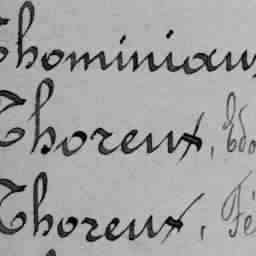 Thominiaux
Thoreux, Edo
Thoreux, Fé